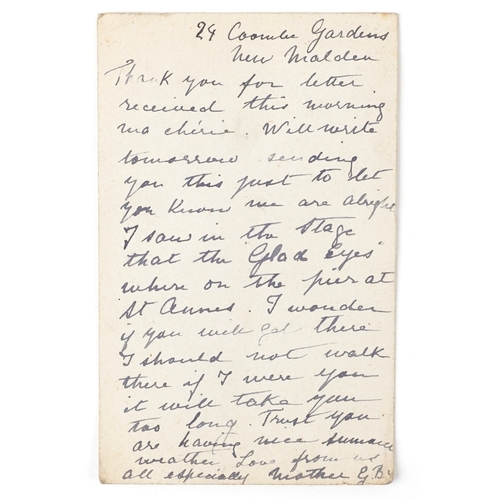 24 Coombe Gardens
New Malden
Thank you for letter
received this morning
ma chérie. Will write
tomorrow sending
you this just to let
you know we are alright
I saw in 'the Stage
that the 'Glad Eyes'
where on the pier at
St Annes. I wonder
if you will get there
I should not walk
there if I were you
it will take you
too long. Trust you
are having nice summer
weather. Love from us
all especially Mother G.B.